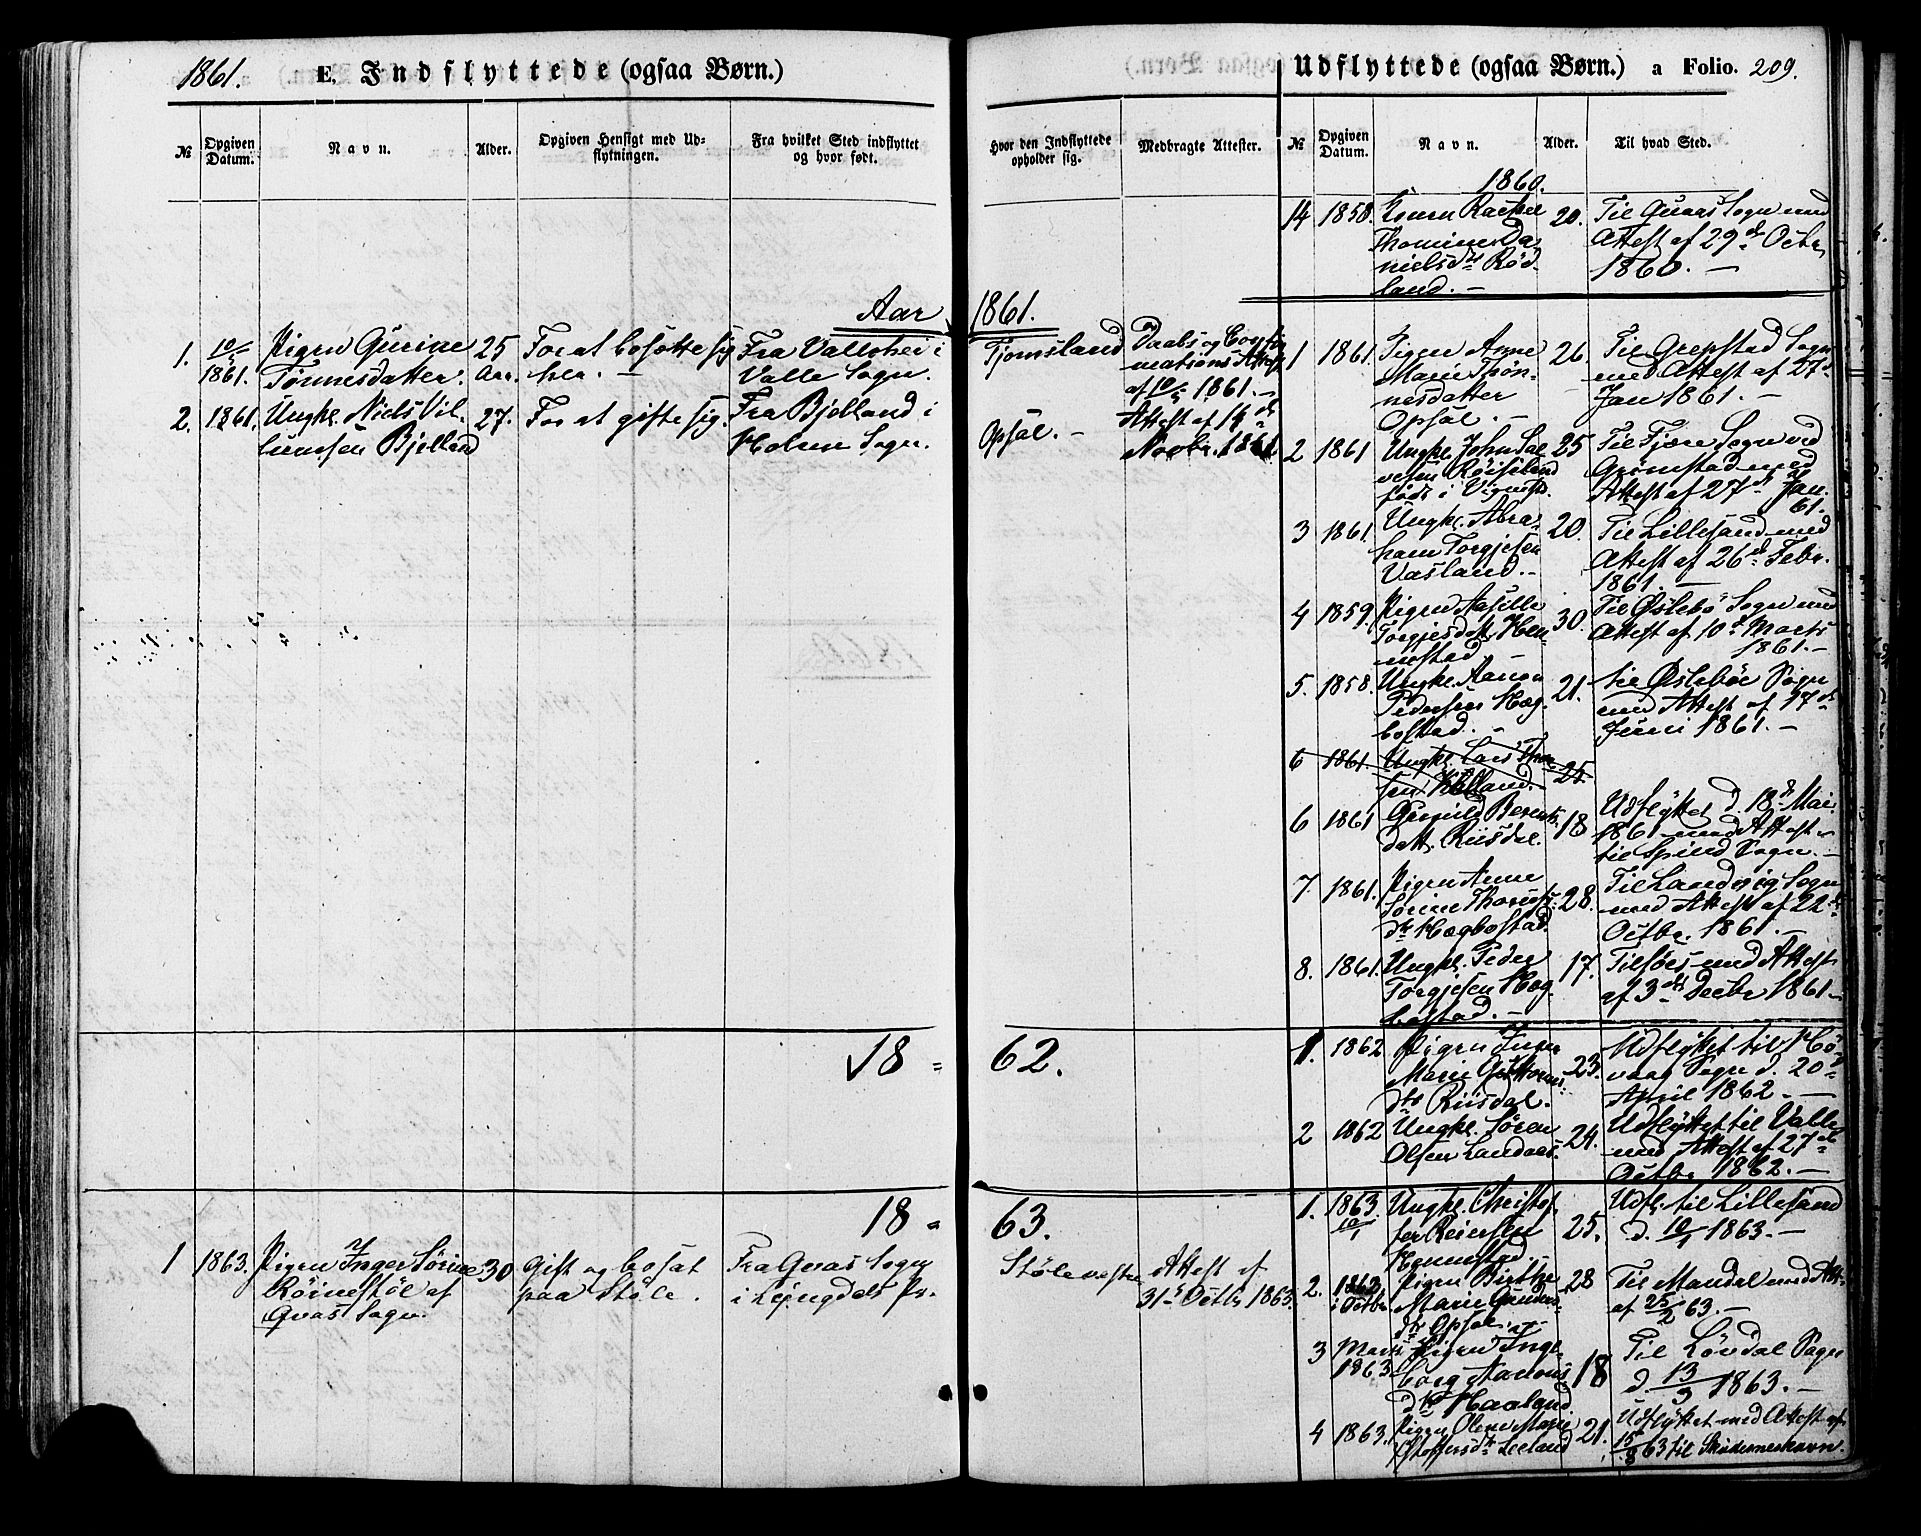 1861.
E. Indflyttede (ogsaa Børn.)
№
Opgiven Datum.
Navn.
Alder.
Opgiven Hensigt med Ud-
flytningen.
Fra hvilket Sted indflyttet
og hvor født.
Hvor den Indflyttede
opholder sig.
Medbragte Attester.
Aar 1861.
1. 10/5 1861.
Pigen Gurine
Tønnesdatter.
25 Aar.
For at bosætte sig
her. —
Fra Vallehei i
Valle Sogn.
Tjomsland
Daabs og Confir
mations Attest
af 10/5 1861. —
2. 1861.
Ungkl. Niels Vil
lumsen Bjelland
27.
For at gifte sig.
Fra Bjelland i
Holum Sogn.
Opsøl. —
Attest af 14de
Novbr. 1861
18 = 62.
18 = 63.
1 1863.
Pigen Inger Sørine
Røinestøl af
Qvas Sogn.
30
Gift og bosat
paa Støle.
Fra Qvas Sogn
i Lyngdals Pr.
Støle vestre
Attest af
31te Octbr 1863.
Udflyttede (ogsaa Børn.) a Folio. 209.
№
Opgiven Datum.
Navn.
Alder.
Til hvad Sted.
1860.
14 1858.
Konen Rachel
Thomine Da
nielsdtr Rød
land. —
20.
Til Qvaas Sogn med
Attest af 29de Octbr
1860. —
1 1861.
Pigen Anne
Marie Tøn
nesdatter
Opsøl. —
26.
Til Grepstad Sogn
med Attest af 27de
Jan 1861. —
2 1861
Ungkl. John Sal
vesen Røiseland
født i Vigmost.
25
Til Fjære Sogn ved
Grimstad med
Attest af 27de Jan.
61.
3 1861.
Ungkl. Abra
ham Torgjesen
Vasland. —
20.
Til Lillesand med
Attest af 26de Febr.
1861. —
4 1859.
Pigen Aasille
Torgjesdatt. Hen
nestad
30.
Til Øslebø Sogn med
Attest af 10de Marts
1861. —
5. 1858.
Ungkl. Aanon
Pedersen Hæg
bostad. —
21.
til Øslebøe Sogn
med Attest af 17de
Juni 1861. —
6 1861.
Ungkl. Lars
sen Helland.
25.
6 1861
Gunild Berents
datt. Riisdal.
18
Udflyttet d. 18de Mai
1861 med Attest
til Spind Sogn. —
7. 1861.
Pigen Anne
Serine
dtr Hægbostad.
28.
Til Landvig Sogn
med Attest af 22de
Octbr. 1861. —
8. 1861.
Ungkl. Peder
Torgjesen Hæg
bostad. —
17.
Tilsøes med Attest
af 3die Decbr 1861 —
1. 1862
Pigen Inger
Marie Guttorms
dtr Riisdal.
23.
Udflyttet til Hø
vaag Sogn d. 20de
April 1862. —
2 1862
Ungkl. Søren
Olsen Landaas.
24.
Udflyttet til Valle
med Attest af 27de
Octbr 1862. —
1. 1863. 10/1
Ungkl. Christof
fer Reiersen
Hennestad. —
25.
Udfl. til Lillesand
d. 10/1 1863. —
2. 1863 i Octbr
Pigen Birthe
Marie Gunders
dtr Opsøl. —
28
Til Mandal med Att.
af 25/2 63. —
3 Marts 1863
Pigen Inge
borg Aanons
dtr Haaland
18
Til Løvdal Sogn
d. 13/3 1863. —
4 1863.
Pigen Olene Marie
Leeland
21.
Udflyttet med Attest af
15/8 63 til